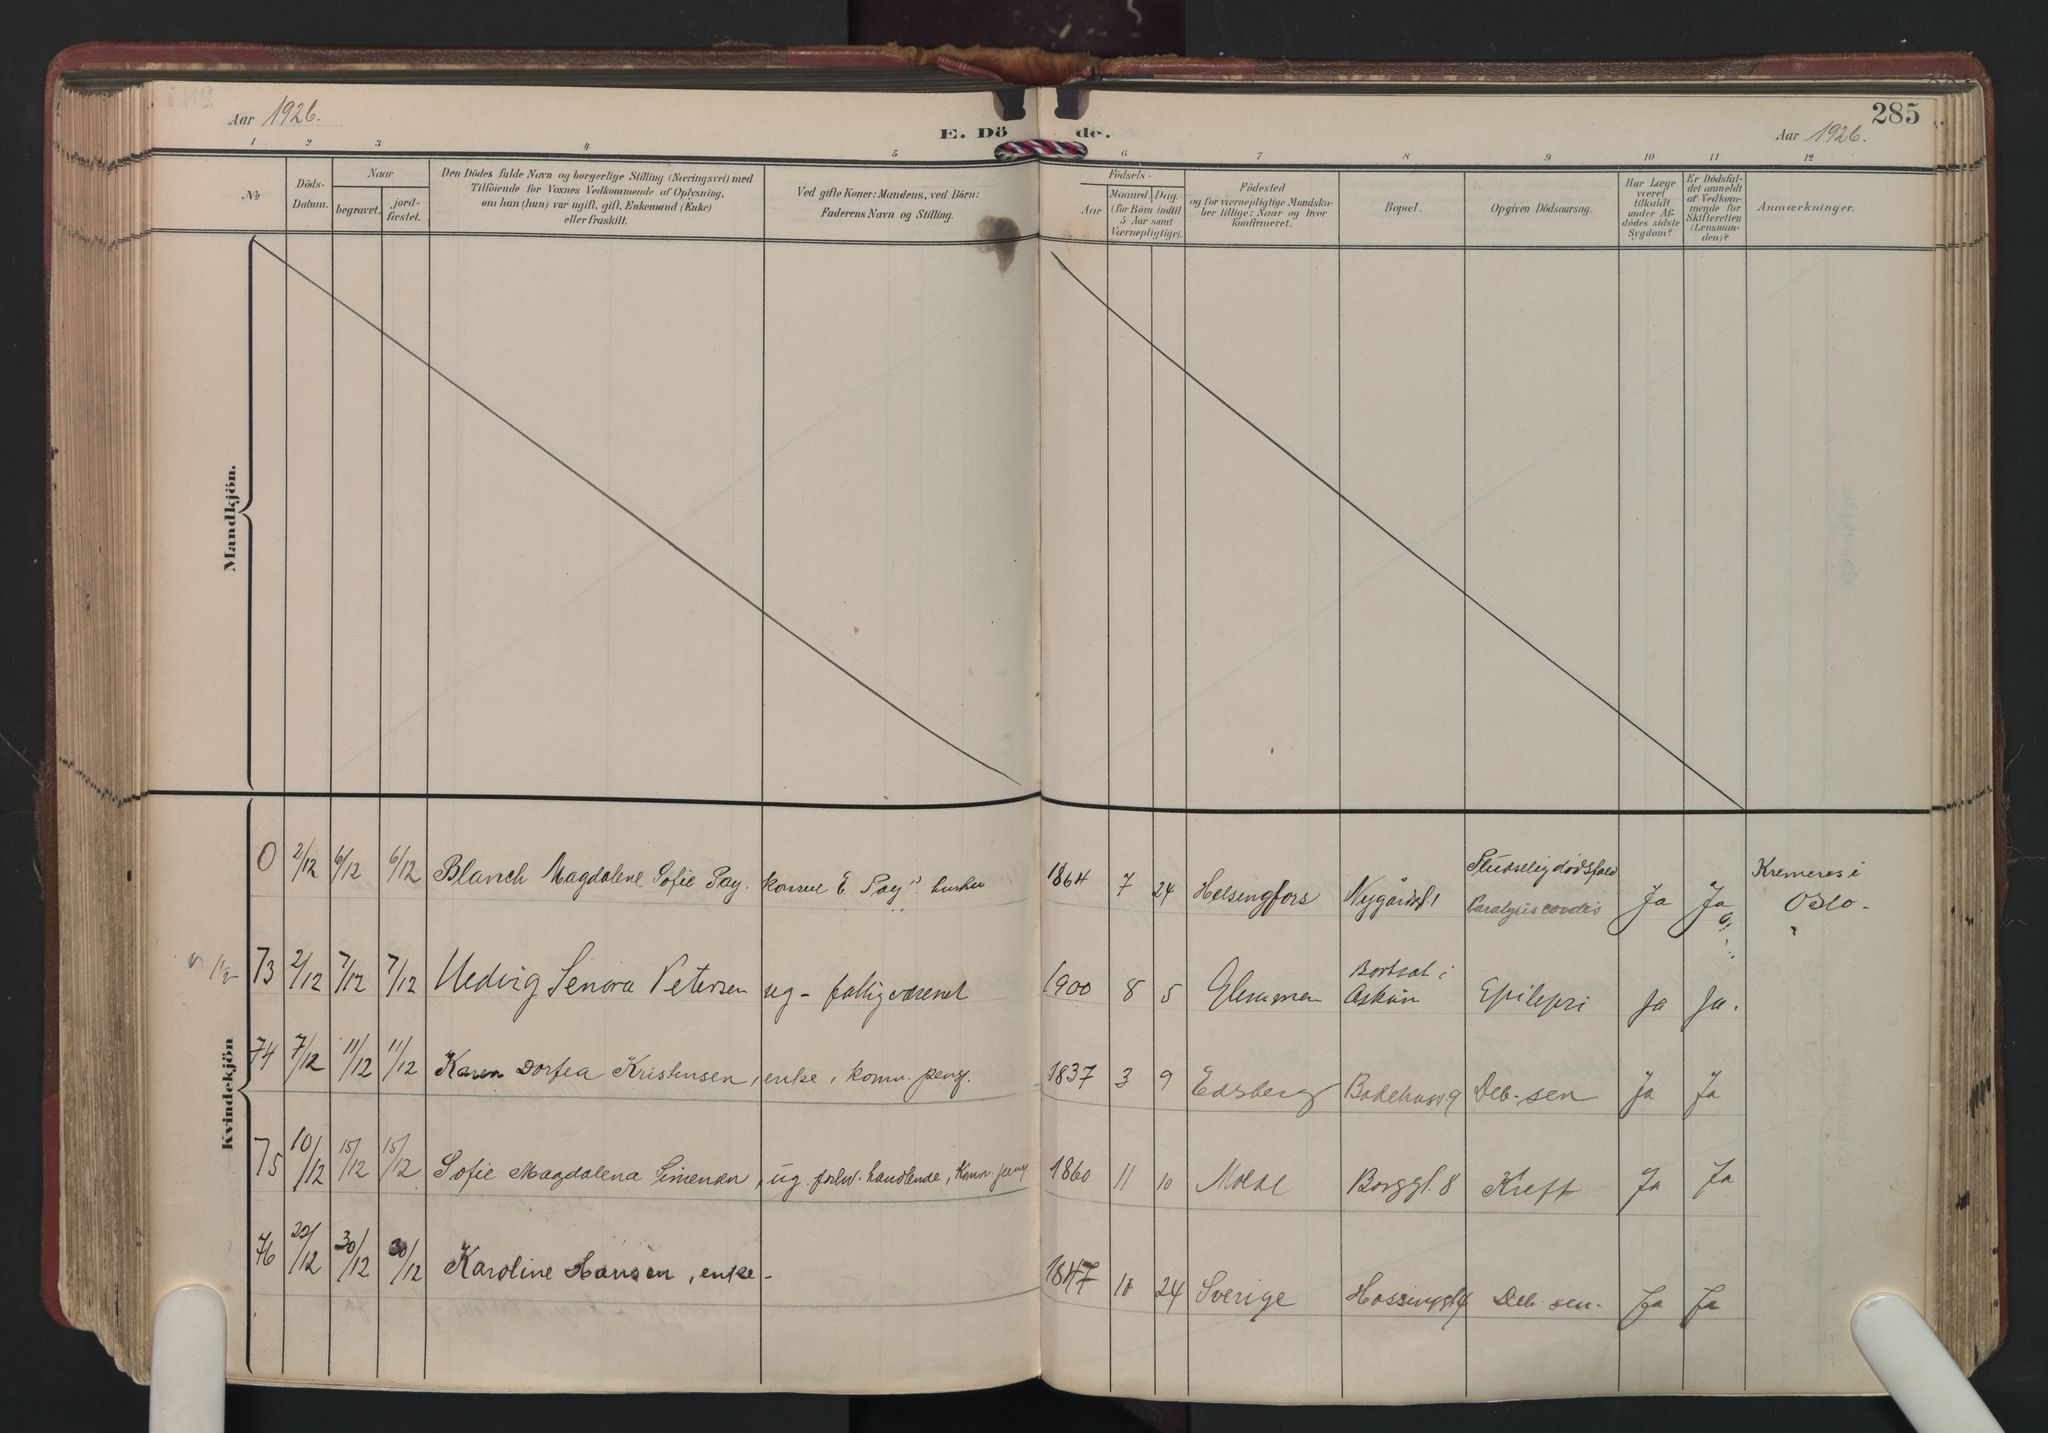 Aar 1926.
E. Dö de.
285
Aar 1926.
1 2 3 4 5 6 7 8 9 10 11 12
No
Döds-
Datum.
Naar
begravet.
jord-
fæstet.
Den Dödes fulde Navn og borgerlige Stilling (Næringsvei) med
Tilföiende for Voxnes Vedkommende af Oplysning,
om han (hun) var ugift, gift, Enkemand (Enke)
eller fraskilt.
Ved gifte Koner: Mandens, ved Börn:
Faderens Navn og Stilling.
Födsels-
Aar
Maaned Dag
(for Börn indtil
5 Aar samt
Værnepligtige).
Födested
og for værnepligtige Mandska-
ber tillige: Naar og hvor
konfirmeret.
Bopæl.
Opgiven Dödsaarsag.
Har Læge
været
tilkaldt
under Af-
dödes sidste
Sygdom?
Er Dödsfal-
det anmeldt
af Vedkom-
mende for
Skifteretten
(Lensman-
den)?
Anmærkninger.
Mandkjön.
Kvindekjön
0 2/12 6/12 6/12 Blanch Magdalene Sofie Pay. konsul E Pay's hustru 1864 7 24 Helsingfors Nygårdsgt 1 Pludselig dødsfald Paralysis cordis Ja Ja Kremeres i
Oslo.
73 2/12 7/12 7/12 Hedvig Senora Petersen ug - fattigvæsenet 1900 8 5 Glemmen Bortsat i
Askim Epilepsi Ja Ja.
74 7/12 11/12 11/12 Karen Dortea Kristensen, enke, kom. pensj. 1837 3 9 Eidsberg Badehusv. 9 Deb. sen Ja Ja
75 10/12 15/12 15/12 Sofie Magdalena Simensen, ug. forhv. handlende, Kom. pensj 1860 11 10 Molde Borggt. 8 Kreft Ja Ja
76 22/12 30/12 30/12 Karoline Hansen, enke - 1847 10 24 Sverige Deb. sen. Ja Ja